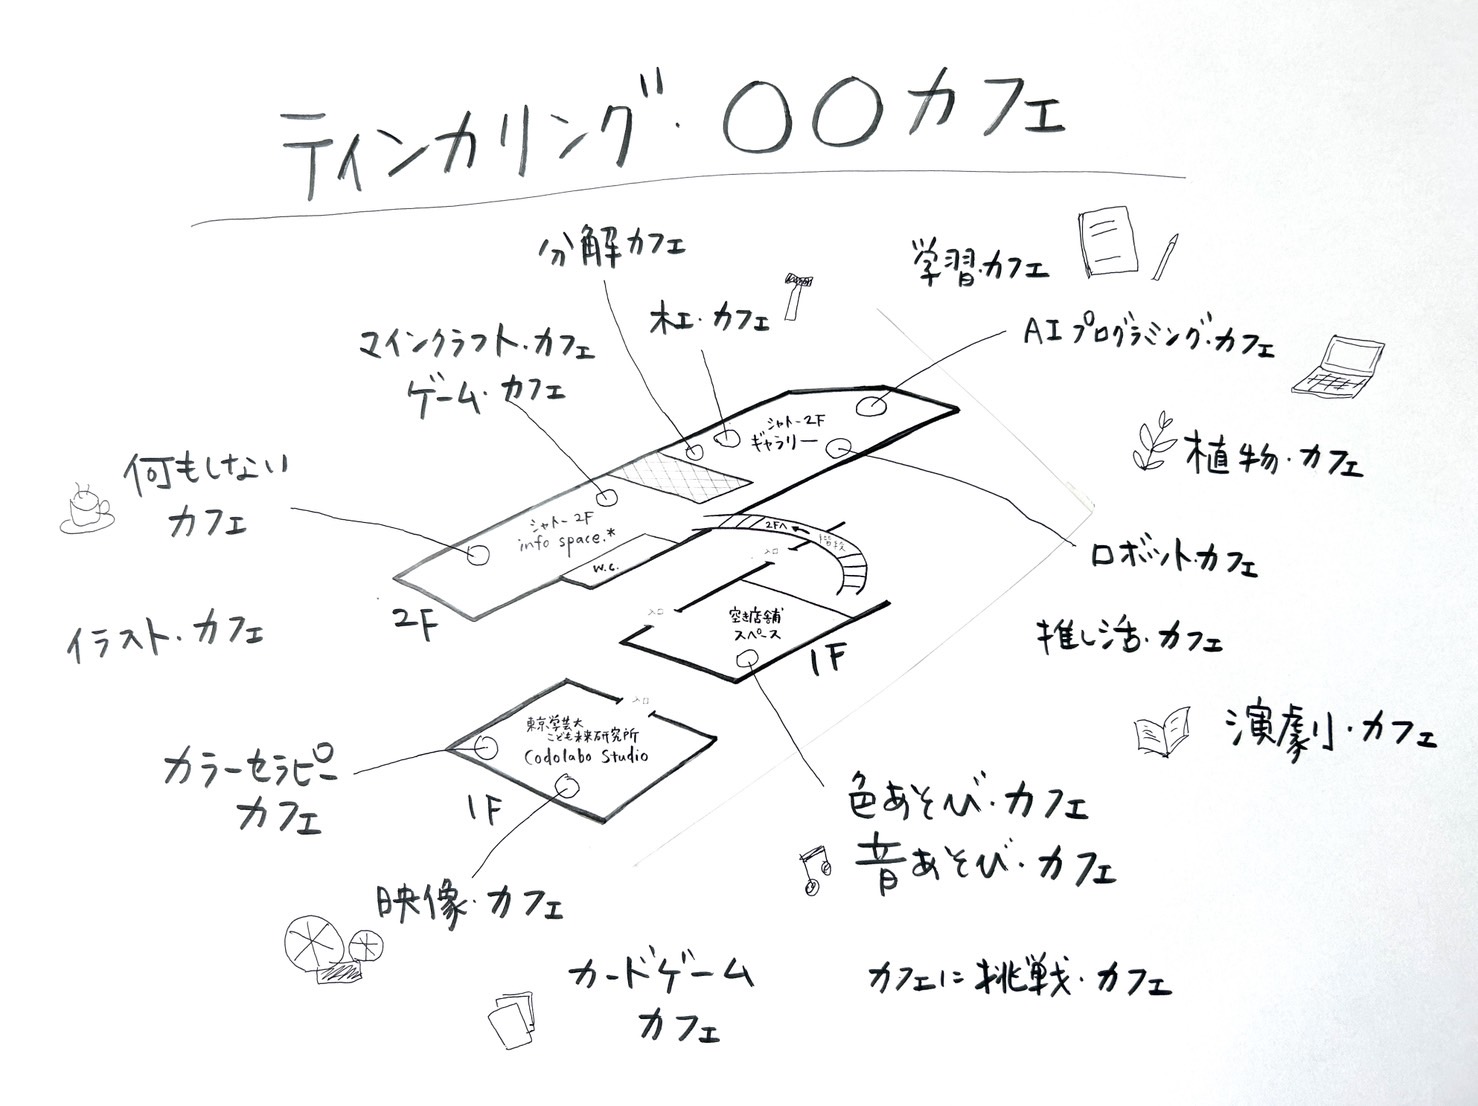 ティンカリング・〇〇カフェ
分解カフェ
学習・カフェ
木工・カフェ
AIプログラミング・カフェ
マインクラフト・カフェ
ゲーム・カフェ
シャトー2F
ギャラリー
何もしない
カフェ
植物・カフェ
シャトー2F
info space.*
W.C.
2Fへ
階段
入口
ロボットカフェ
2F
入口
空き店舗
スペース
1F
イラスト・カフェ
推し活・カフェ
入口
東京学芸大
こども未来研究所
Codolabo Studio
演劇・カフェ
カラーセラピー
カフェ
1F
色あそび・カフェ
音あそび・カフェ
映像・カフェ
カードゲーム
カフェ
カフェに挑戦・カフェ